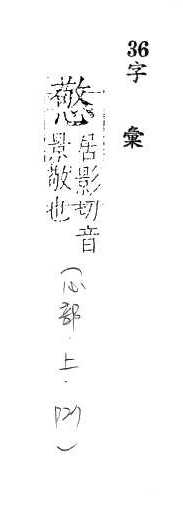 36字彙
憼居影切音
景敬也
(心部.上.